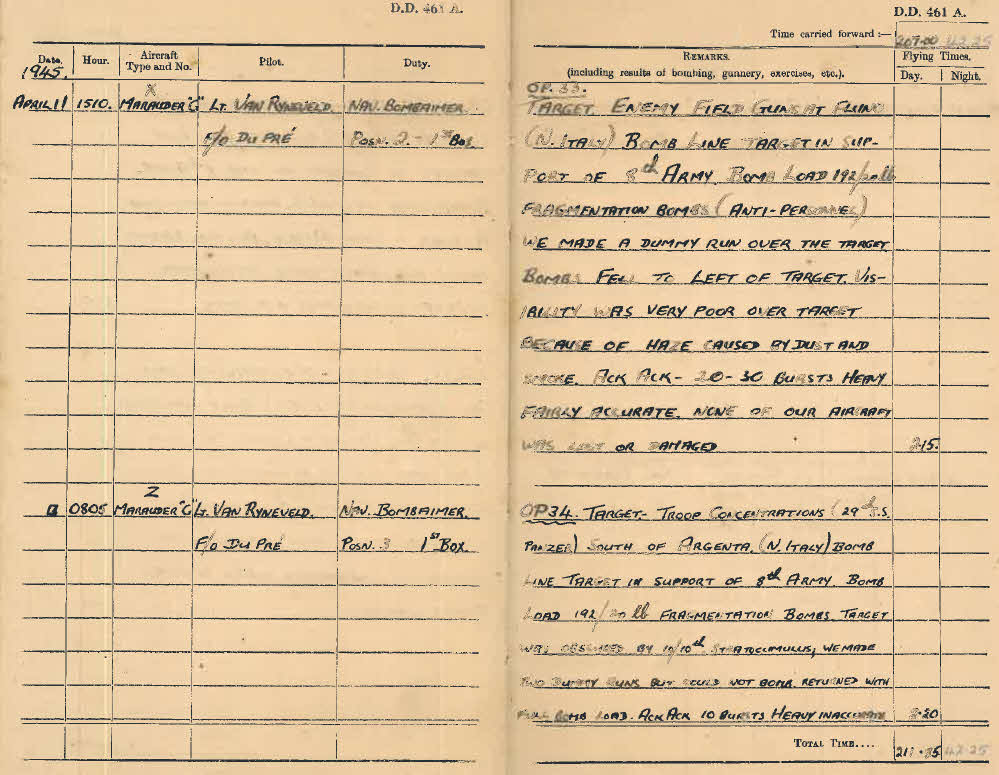 D.D. 461 A.
Date. Hour. Aircraft Type and No. Pilot. Duty.
1945.
X
APRIL 11 1510. MARAUDER "G" LT. VAN RYNEVELD. NAV. BOMBAIMER.
F/O DU PRÉ POSN. 2. - 1ST BOX.
Z
0805 MARAUDER "G" LT. VAN RYNEVELD. NAV. BOMBAIMER.
F/O DU PRÉ POSN. 3 1ST BOX.
D.D. 461 A.
Time carried forward :— 207.00 42.25
REMARKS. Flying Times.
(including results of bombing, gunnery, exercises, etc.). Day. Night.
OP. 33.
TARGET. ENEMY FIELD GUNS AT
(N. ITALY) BOMB LINE TARGET IN SUP-
PORT OF 8th ARMY. BOMB LOAD 192/20 lb
FRAGMENTATION BOMBS (ANTI-PERSONNEL)
WE MADE A DUMMY RUN OVER THE TARGET
BOMBS FELL TO LEFT OF TARGET. VIS-
IBILITY WAS VERY POOR OVER TARGET
BECAUSE OF HAZE CAUSED BY DUST AND
SMOKE. ACK ACK - 20-30 BURSTS HEAVY
FAIRLY ACCURATE. NONE OF OUR AIRCRAFT
WAS LOST OR DAMAGED 2.15.
OP 34. TARGET- TROOP CONCENTRATIONS (29th
PANZER) SOUTH OF ARGENTA. (N. ITALY) BOMB
LINE TARGET IN SUPPORT OF 8th ARMY. BOMB
LOAD 192/20 lb FRAGMENTATION BOMBS. TARGET
WAS OBSCURED BY 10/10th STRATOCUMULUS, WE MADE
TWO DUMMY RUNS BUT COULD NOT BOMB. RETURNED WITH
FULL BOMB LOAD. ACK ACK 10 BURSTS HEAVY INACCURATE 2.20
TOTAL TIME.... 211.35 42.25